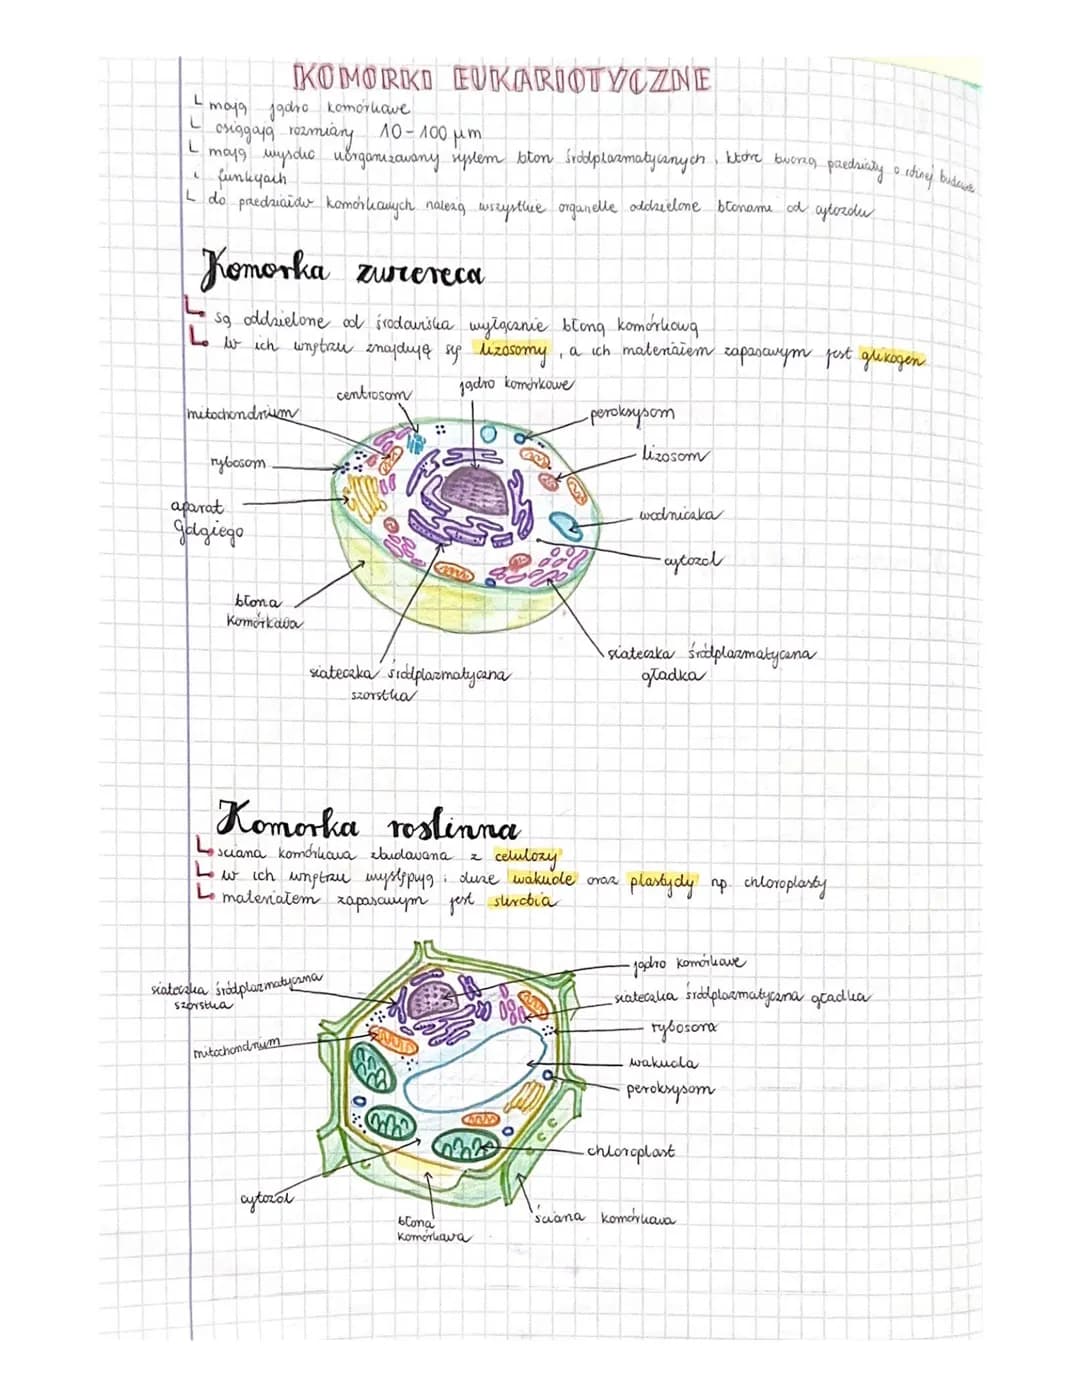 KOMORKI EUKARIOTYCZNE
mają jądro komórkowe
osiągają rozmiary 10-100 μm
mają wysoko uorganizowany system błon śródplazmatycznych, które tworzą przedziały o różnej budowie
i funkcjach
do przedziałów komórkowych należą wszystkie organelle oddzielone błonami od cytozolu
Komorka zwierzęca
są oddzielone od środowiska wyłącznie błoną komórkową
w ich wnętrzu znajdują się lizosomy, a ich materiałem zapasowym jest glikogen
centrosom
jądro komórkowe
mitochondrium
peroksysom
rybosom
lizosom
aparat
Golgiego
wodniczka
cytozol
błona
komórkowa
siateczka śródplazmatyczna
szorstka
siateczka śródplazmatyczna
gładka
Komorka roslinna
sciana komórkowa zbudowana z celulozy
w ich wnętrzu występują: duże wakuole oraz plastydy np. chloroplasty
materiałem zapasowym jest skrobia
siateczka śródplazmatyczna
szorstka
jądro komórkowe
siateczka śródplazmatyczna gładka
rybosom
mitochondrium
wakuola
peroksysom
chloroplast
cytozol
błona
komórkowa
ściana komórkowa